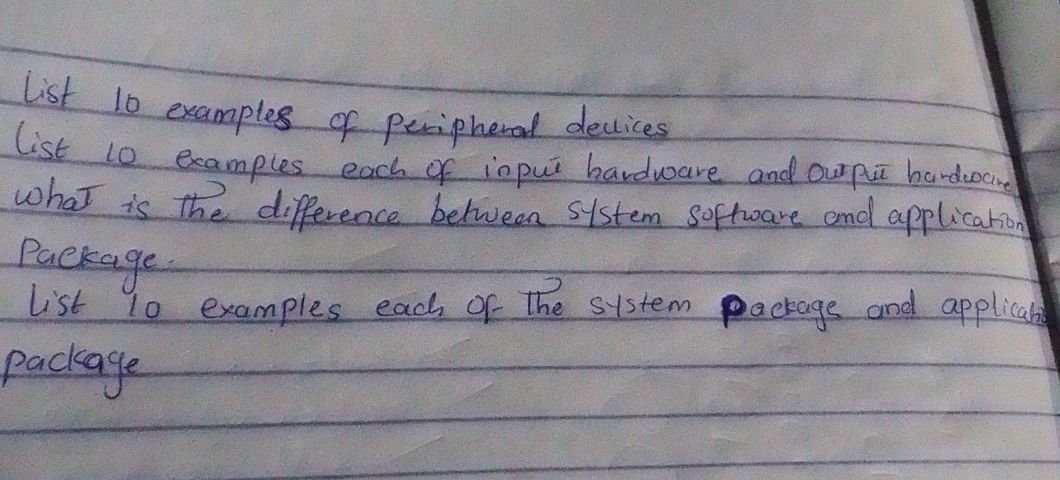 List 10 examples of peripheral devices
List 10 examples each of input hardware and output hardware
What is the difference between system software and application
Package.
List 10 examples each of the system package and applicatio
package